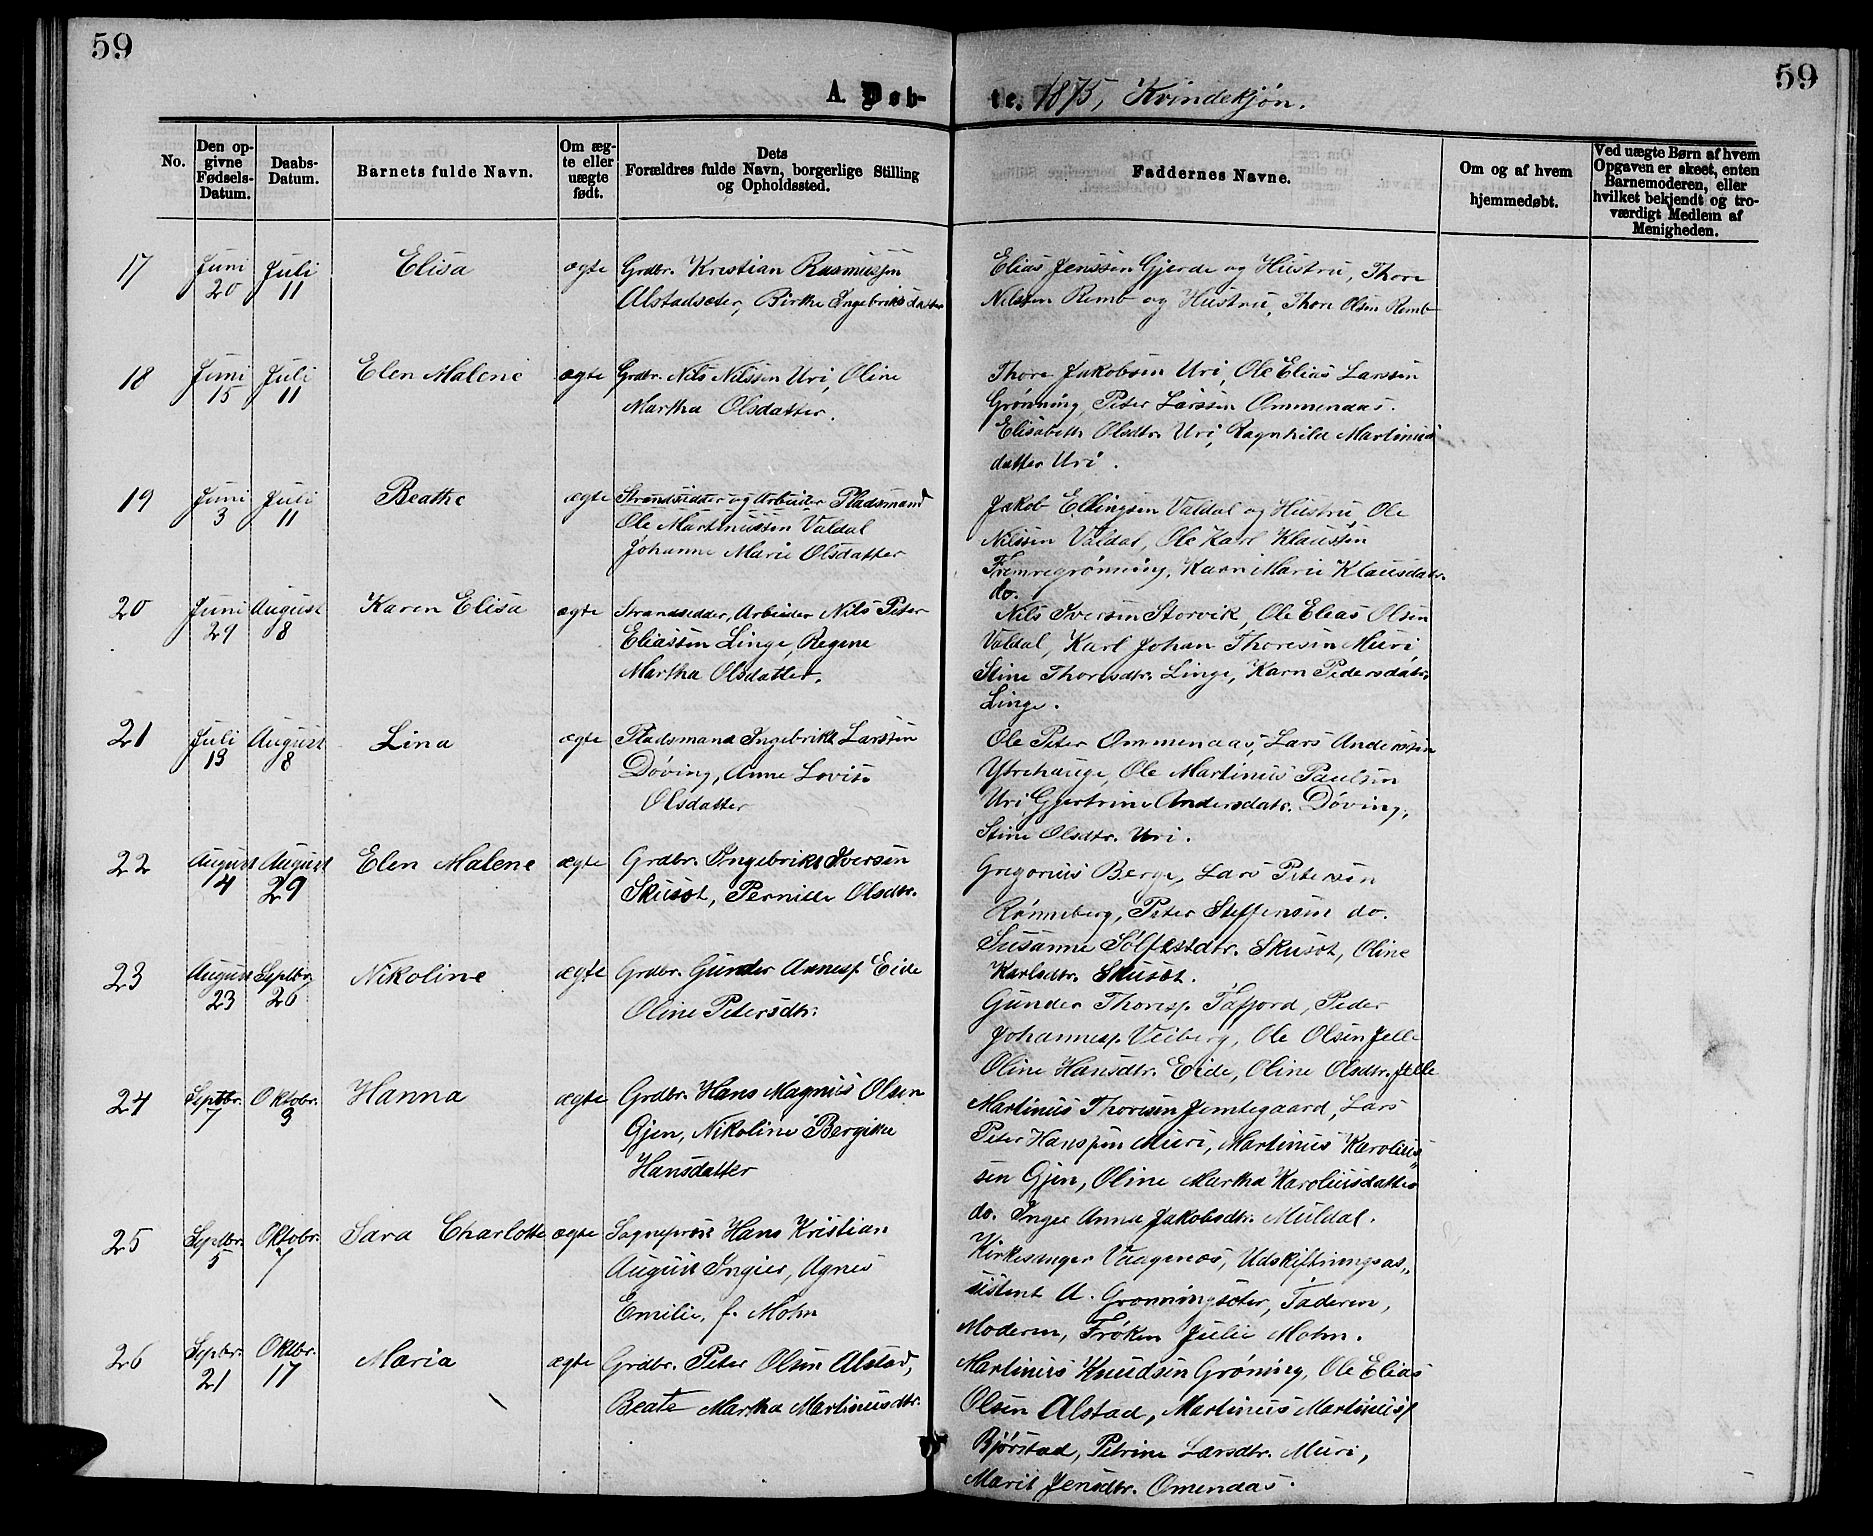 59
59
A. Døb-
te. 1875, Kvindekjøn.
No.
Den op-
givne
Fødsels-
Datum.
Daabs-
Datum.
Barnets fulde Navn.
Om æg-
te eller
uægte
født.
Dets
Forældres fulde Navn, borgerlige Stilling
og Opholdssted.
Faddernes Navne.
Om og af hvem
hjemmedøbt.
Ved uægte Børn af hvem
Opgaven er skeet, enten
Barnemoderen, eller
hvilket bekjendt og tro-
værdigt Medlem af
Menigheden.
17 Juni 20 Juli 11 Elisa ægte Grdbr. Kristian Rasmussen
Alstadsæter, Birthe Ingebrikts datter
Elias Jenssen Gjerde og Hustru, Thore
Nilssen Remb og Hustru, Thore Olsen Remb
18 Juni 15 Juli 11 Elen Malene ægte Grdbr. Nils Nilssen Uri, Oline
Martha Olsdatter.
Thore Jakobsen Uri, Ole Elias Larssen
Grønning, Peter Larssen Ommendaas.
Elisabeth Olsdtr. Uri, Ragnhild Martinus
datter Uri.
19 Juni 3 Juli 11 Beathe ægte Strandsidder og Arbeider Pladsmand
Ole Martinussen Valdal
Johanne Marie Olsdatter
Jakob Ellingsen Valdal og Hustru, Ole
Nilssen Valdal, Ole Karl Klaussen
Fremregrønning, Karn Marie Klausdatr.
do.
20 Juni 29 August 8 Karen Elisa ægte Strandsidder, Arbeider Nils Peter
Eliassen Linge, Regine
Martha Olsdatter.
Nils Iversen Storvik, Ole Elias Olsen
Valdal, Karl Johan Thoresen Muri,
Stine Thoresdtr. Linge, Karn Pedersdatr.
Linge.
21 Juli 13 August 8 Lina ægte Pladsmand Ingebrikt Larssen
Døving, Anne Lovise
Olsdatter
Ole Peter Ommendaas, Lars Anderssen
Ytrehauge, Ole Martinus Paulsen
Uri, Gjertrine Andersdatr. Døving,
Stine Olsdtr. Uri.
22 August 14 August 29 Elen Malene ægte Grdbr. Ingebrikt Iversen
Skusøt, Pernille Olsdtr.
Gregorius Berge, Lars Petersen
Rønneberg, Peter Steffensen do.
Susanne Sølfestdtr. Skusøt, Oline
Karlsdtr. Skusøt.
23 August 23 Septbr 26 Nikoline ægte Grdbr. Gunder Anness. Eide
Oline Petersdtr.
Gunder Thoress. Tafjord, Peder
Johanness. Veiberg, Ole Olsen Jelle
Oline Hansdtr. Eide, Oline Olsdtr. Jelle
24 Septbr. 7 Oktobr. 3 Hanna ægte Grdbr. Hans Magnus Olsen
Gjen, Nikoline Bergitte
Hansdatter
Martinus Thoresen Jemtegaard, Lars
Peter Hanssen Muri, Martinus Karolius-
sen Gjen, Oline Martha Karoliusdatter
do. Inger Anna Jakobsdtr. Muldal.
25 Septbr. 5 Oktobr. 7 Sara Charlotte ægte Sogneprest Hans Kristian
August Ingier, Agnes
Emilie, f. Mohn
Kirkesanger Vaagenes, Udskiftningsas„
sistent A. Grønningsæter, Faderen,
Moderen, Frøken Julie Mohn.
26 Septbr. 21 Oktbr. 17 Maria ægte Grdbr. Peter Olsen Alstad,
Beate Martha Martinusdtr.
Martinus Knudsen Grøning, Ole Elias
Olsen Alstad, Martinus Martinuss.
Bjørstad, Petrine Larsdtr. Muri,
Marit Jensdtr. Omendaas.